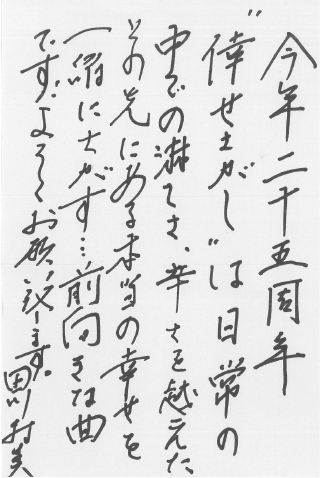 今年二十五周年
“倖せさがし”は日常の
中での淋しさ、辛さを越えた、
その先にある本当の幸せを
一緒にさがす…前向きな曲
です。よろしくお願い致します。田川寿美